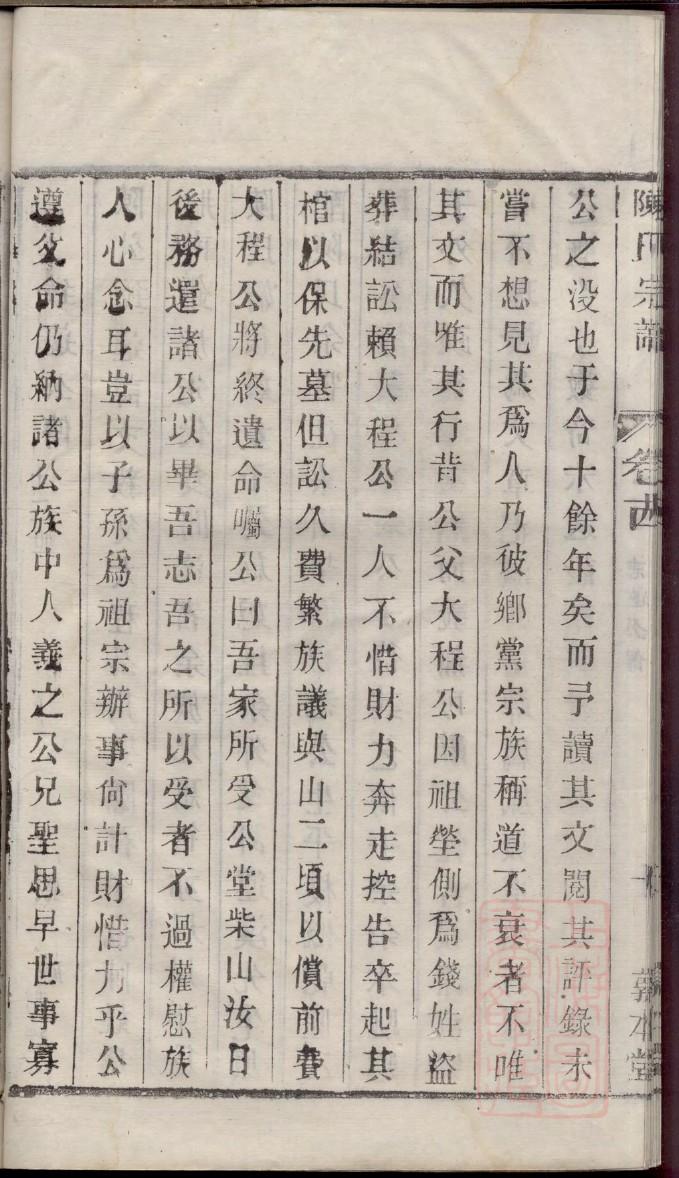 陳氏宗譜 卷 十 敦本堂
公之没也于今十餘年矣而予讀其文閱其評錄未
嘗不想見其爲人乃彼鄉黨宗族稱道不衰者不唯
其文而唯其行昔公父大程公因祖塋側爲錢姓盜
葬結訟賴大程公一人不惜財力奔走控告卒起其
棺以保先墓但訟久費繁族議與山二頃以償前費
大程公將終遺命囑公曰吾家所受公堂柴山汝日
後務還諸公以畢吾志吾之所以受者不過權慰族
人心念耳豈以子孫爲祖宗辦事尙計財惜力乎公
遵父命仍納諸公族中人義之公兄聖思早世事寡